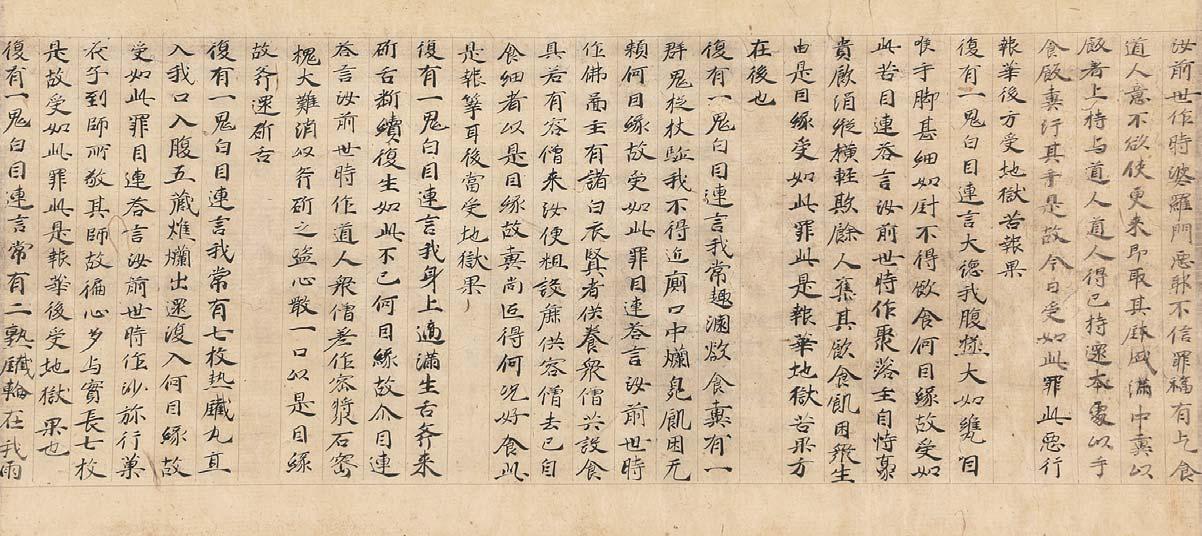 汝前世作時婆羅門惡耶不信罪福有乞食
道人意不欲使更来即取其鉢盛滿中糞以
飯著上持与道人道人得已持還本處以手
食飯糞汙其手是故今日受如此罪此惡行
報華後方受地獄苦報果
復有一鬼白目連言大德我腹極大如甕咽
喉手脚甚細如𠪨不得飲食何因緣故受如
此苦目連荅言汝前世時作聚落主自恃豪
貴飲酒縱橫輕欺餘人奪其飲食飢困衆生
由是因緣受如此罪此是報華地獄苦果方
在後也
復有一鬼白目連言我常趣溷欲食糞有一
群鬼捉杖駈我不得近廁口中爛臭飢困无
頼何因緣故受如此罪目連荅言汝前世時
作佛啚主有諸白衣賢者供養衆僧共設食
具若有客僧来汝便粗設麁供客僧去已自
食細者以是因緣故糞尚叵得何况好食此
是報華耳後當受地獄果
復有一鬼白目連言我身上遍滿生舌斧来
斫舌断續復生如此不已何因緣故尒目連
荅言汝前世時作道人衆僧差作蜜漿石蜜
槐大難消以斧斫之盜心散一口以是因緣
故斧還斫舌
復有一鬼白目連言我常有七枚熱䥫丸直
入我口入腹五蔵燋爛出還復入何因緣故
受如此罪目連荅言汝前世時作沙弥行菓
茷子到師所敬其師故徧心多与實長七枚
是故受如此罪此是報華後受地獄果也
復有一鬼白目連言常有二熟䥫輪在我兩